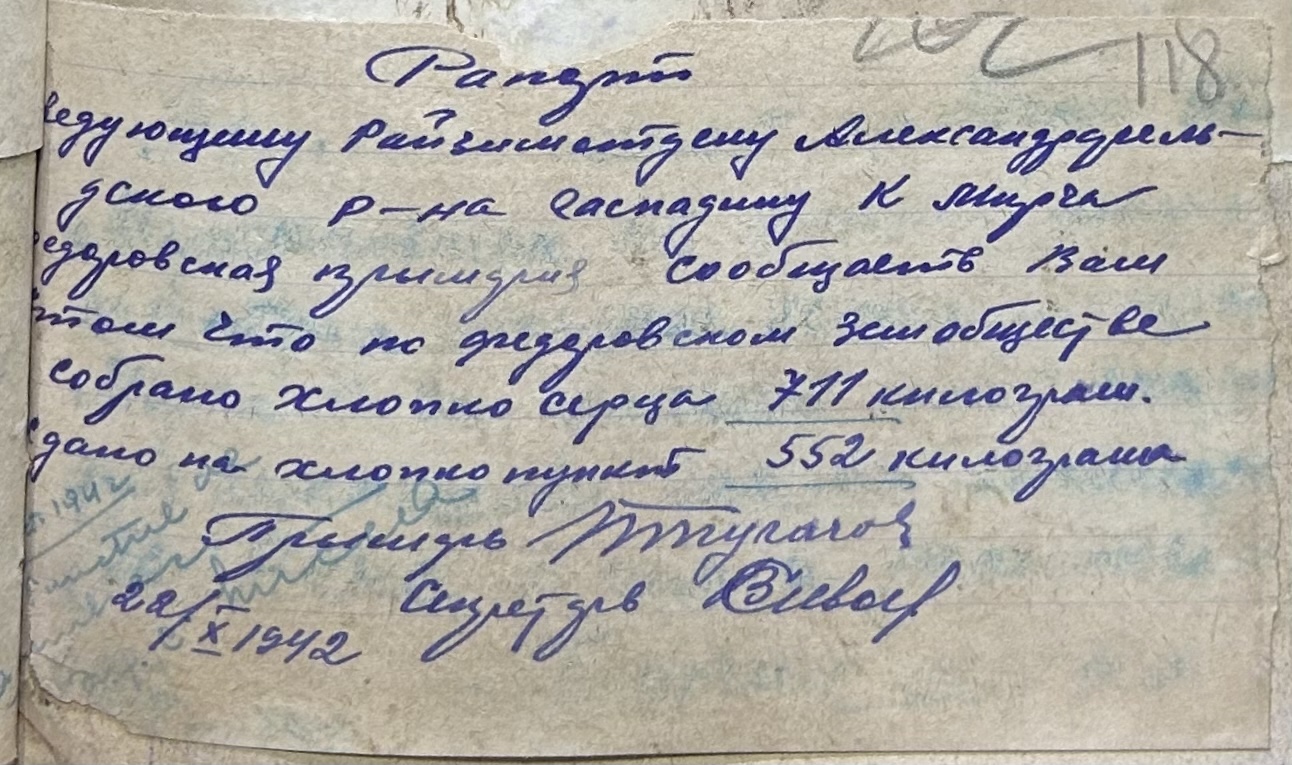 118
Рапорт
ведующему Райзиматдему Александрфель-
дского р-на Гаспадину К Мирча
едоровская примдрия сообщаетъ Вам
том что по федоровском земобществе
собрано хлопко серца 711 килограм.
дано на хлопкопункт 552 килограма
Примарь
Секретарь
22/X 1942